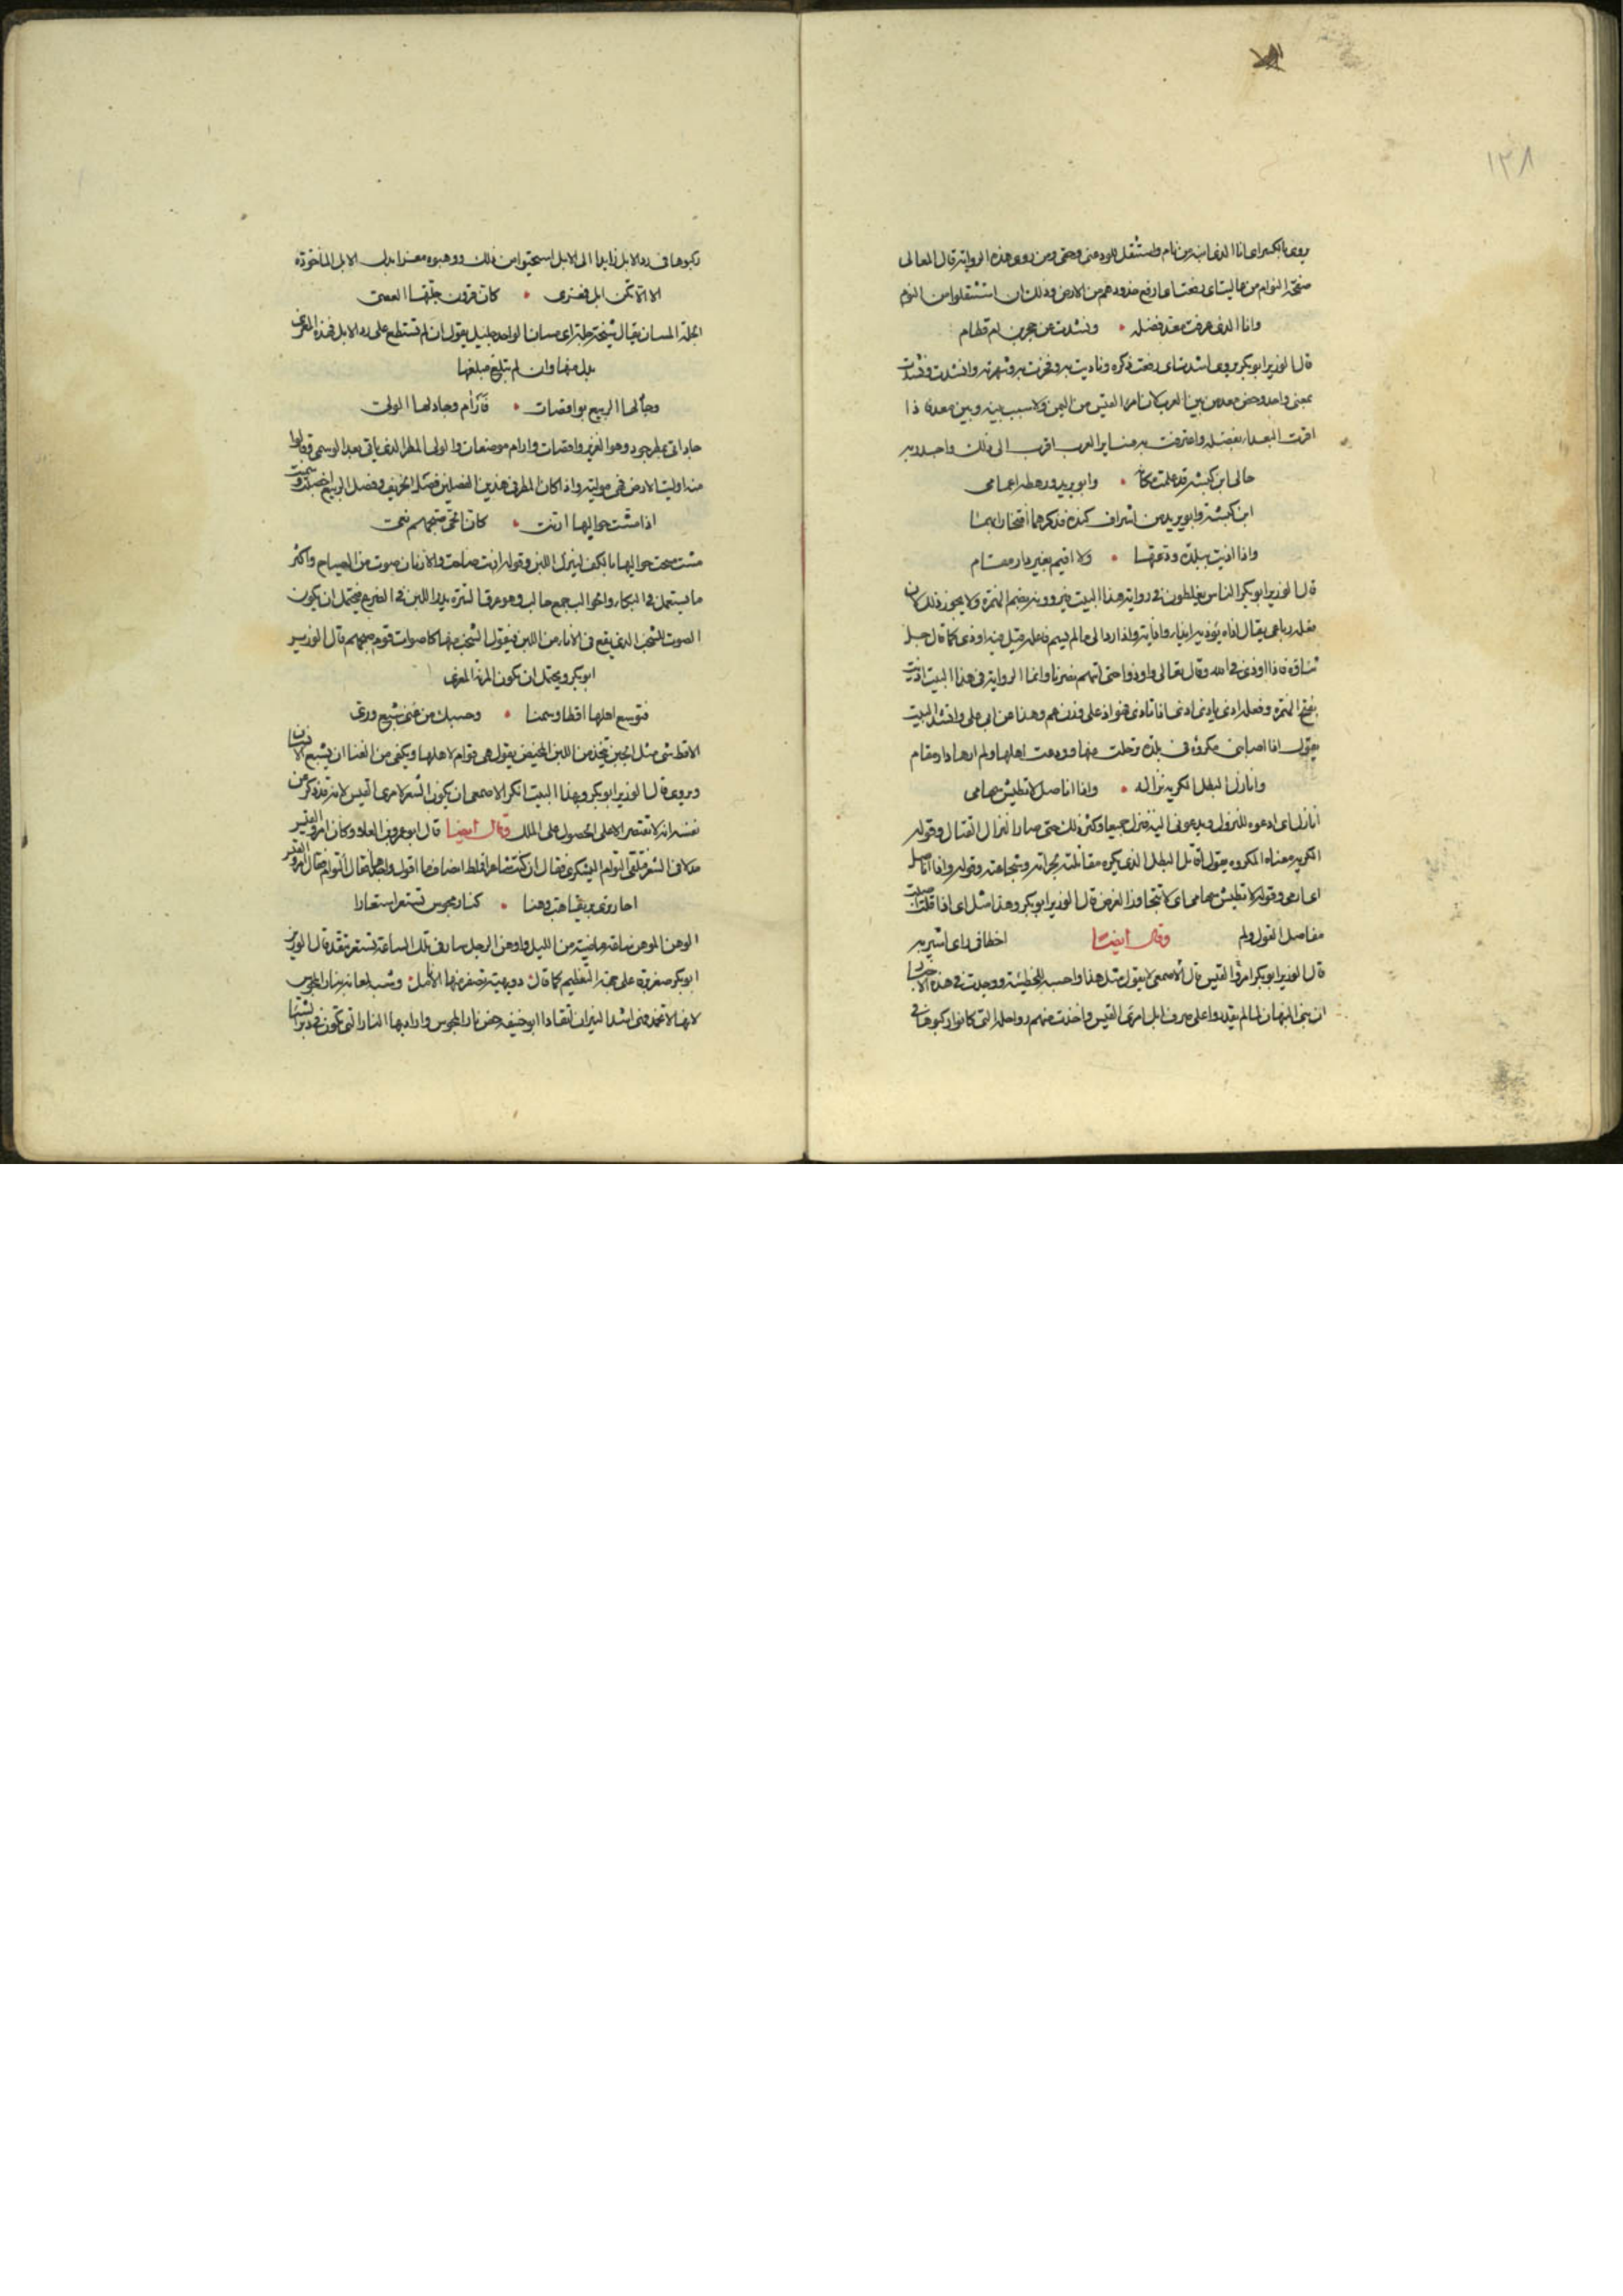 ١٣٨
يروى بالكسر اى انا الذى انبه من نام واستثقل للوم منى وحتى ومن روى هذه الرواية قال المعالى
صفحة النوام من هاليتاى رفعتاى ارفع خدودهم من الارض وذلك ان استثقلوا من النوم
وانا الذى عرفت معد فضله • ونشدت عن حجر بن ام قطام
قال الوزير ابو بكر يروى انشدت اى رفعت ذكره وناديت به وفخرت به وشهرته وانشدت ونشدت
بمعنى واحد وخص معد من بين العرب لان امرا القيس من اليمن ولا سبب بينه وبين معد فاذا
اقرت البعداء بفضله واعترفت به فسائر العرب اقرب الى ذلك واجدر به
خالى ابن كبشة قد علمت مكانه • وابو يزيد ورهطه اعمامى
ابن كبشة وابو يزيد من اشراف كندة فذكرهما افتخارا بهما
واذا اذيت ببلدة ودعتها • ولا اقيم بغير دار مقام
قال الوزير ابو بكر الناس يغلطون فى رواية هذا البيت فيروونه بضم الهمزة ولا يجوز ذلك لان
فعله رباعى يقال اذاه يؤذيه ايذاء واذاية واذا رد الى ما لم يسم فاعله قيل فيه اوذى كما قال جل
ثناؤه فاذا اوذى فى الله وقال تعالى واوذوا حتى اتاهم نصرنا وانما الرواية فى هذا البيت اذيت
بفتح الهمزة وفعله اذى ياذى اذى فاتاذى فهو اذ على وزن عم وهذا عن ابى على وانشد البيت
يقول اذا اصابنى مكروه فى بلدة رحلت عنها وودعت اهلها ولم ارها دار مقام
وانازل البطل الكريه نزاله • واذا اناضل لا تطيش سهامى
انازل اى ادعوه للنزول ويدعونى اليه فننزل جميعا وكثر ذلك حتى صار النزال القتال وقوله
الكريه معناه المكروه يقول اقاتل البطل الذى يكره مقاتلته لجراته وشجاعته وقوله واذا اناضل
اى ارمى وقوله لا تطيش سهامى اى لا تتجاوز الغرض قال الوزير ابو بكر وهذا مثل اى اذا قلت اصبت
مفاصل القول ولم اخطا فى راى اشير به وقال ايضا
قال الوزير ابو بكر امرؤ القيس قال الاصمعى لا يقول مثل هذا واحسبه للحطيئة ووجدت فى هذه الاخبار
ان بنى النبهان لما لم يقدروا على صرف ابل امرئ القيس واخذت منهم رواحله التى كانوا ركبوها فى
ركبوها فى رد الابل ذاهبا الى الابل استحيوا من ذلك ووهبوه معزا بدل الابل الماخوذة
الا الا تكن ابل فمعزى • كان قرون جلتها العصى
الجلة المسان يقال شيخة جلة اى مسان الواحد جليل يقول ان لم تستطع على رد الابل فخذ المعزى
بدل منها وان لم تبلغ مبلغها
وجاد لها الربيع بواقصات • فآرام وجاد لها الولى
جاد اتى بمطر جود وهو الغزير واقصات وارام موضعان والولى المطر الذى ياتى بعد الوسمى وقالوا
منه وليت الارض فهى مولية واذا كان المطر فى هذين الفصلين فصل الخريف وفصل الربيع اخصبت وسمنت
اذا مشت حوالبها ارنت • كان الحى صبحهم نعى
مشت مسحت حوالبها بالكف لينزل اللبن وقوله ارنت صاحت والارنان صوت من الصياح واكثر
ما يستعمل فى البكاء والحوالب جمع حالب وهو عرق السرة يدر اللبن فى الضرع فيحتمل ان يكون
الصوت للشخب الذى يقع فى الاناء من اللبن فيقول الشخب منها كاصوات قوم صبحهم قال الوزير
ابو بكر ويحتمل ان تكون المرنة المعزى
فتوسع اهلها اقطا وسمنا • وحسبك من غنى شبع ورى
الاقط شى مثل الجبن يتخذ من اللبن المخيض يقول هى قوام لاهلها ويكفى من الغنا ان يشبع الانسان
ويروى قال الوزير ابو بكر وبهذا البيت انكر الاصمعى ان يكون الشعر لامرئ القيس لانه قد ذكر عن
نفسه انه لا تقتصر الا على الحصول على الملك وقال ايضا قال ابو عمرو بن العلاء وكان امرؤ القيس
فلقى التوام اليشكرى فقال ان كنت شاعرا فملط انصاف ما اقول واجزها فقال التوام فقال امرؤ القيس
احار ترى بريقا هب وهنا • كنار مجوس تستعر استعارا
الوهن الموهن ساعة ماضية من الليل واوهن الرجل سار فى تلك الساعة تستعر تتقد قال الوزير
ابو بكر صغر برق على جهة التعظيم كما قال دويهية تصفر منها الانامل وشبه لمعانه بنار المجوس
لانها لا تخمد فهى اشد النيران اتقادا ابو حنيفة خص نار المجوس واراد بها النار التى تكون فى